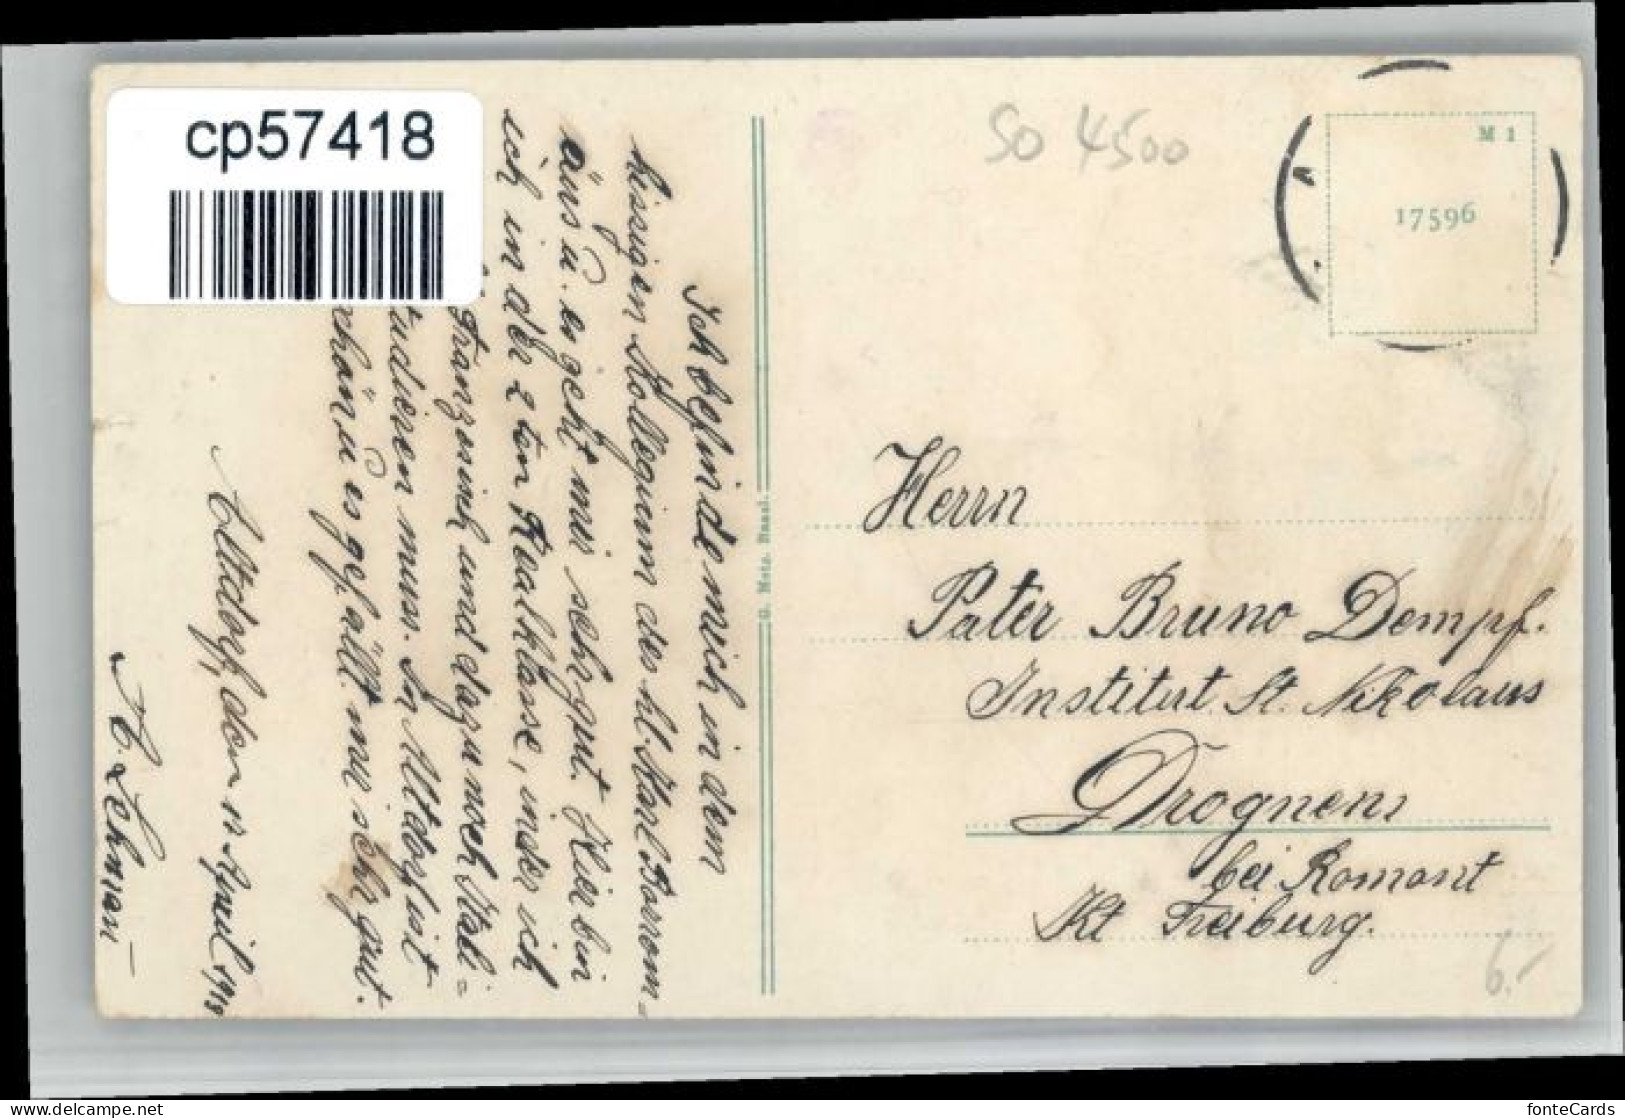 cp57418
SO 4500
M 1
17596
Ich befinde mich in dem
hissigen Kollegium des hl. Karl Borrom-
äus u. es geht mir sehr gut. Hier bin
ich in der 2ten Realklasse, in der ich
Französisch und dazu noch Itali-
tudieren muss. In Altdorf ist
chön u es gefällt mir sehr gut.
Altdorf, den 12 April 1918
A. Lehman
G. Metz. Basel.
Herrn
Pater Bruno Dempf.
Institut St. Nikolaus
Drognens
bei Romont
Kt Freiburg.
6.-
fonteCards
www.delcampe.net